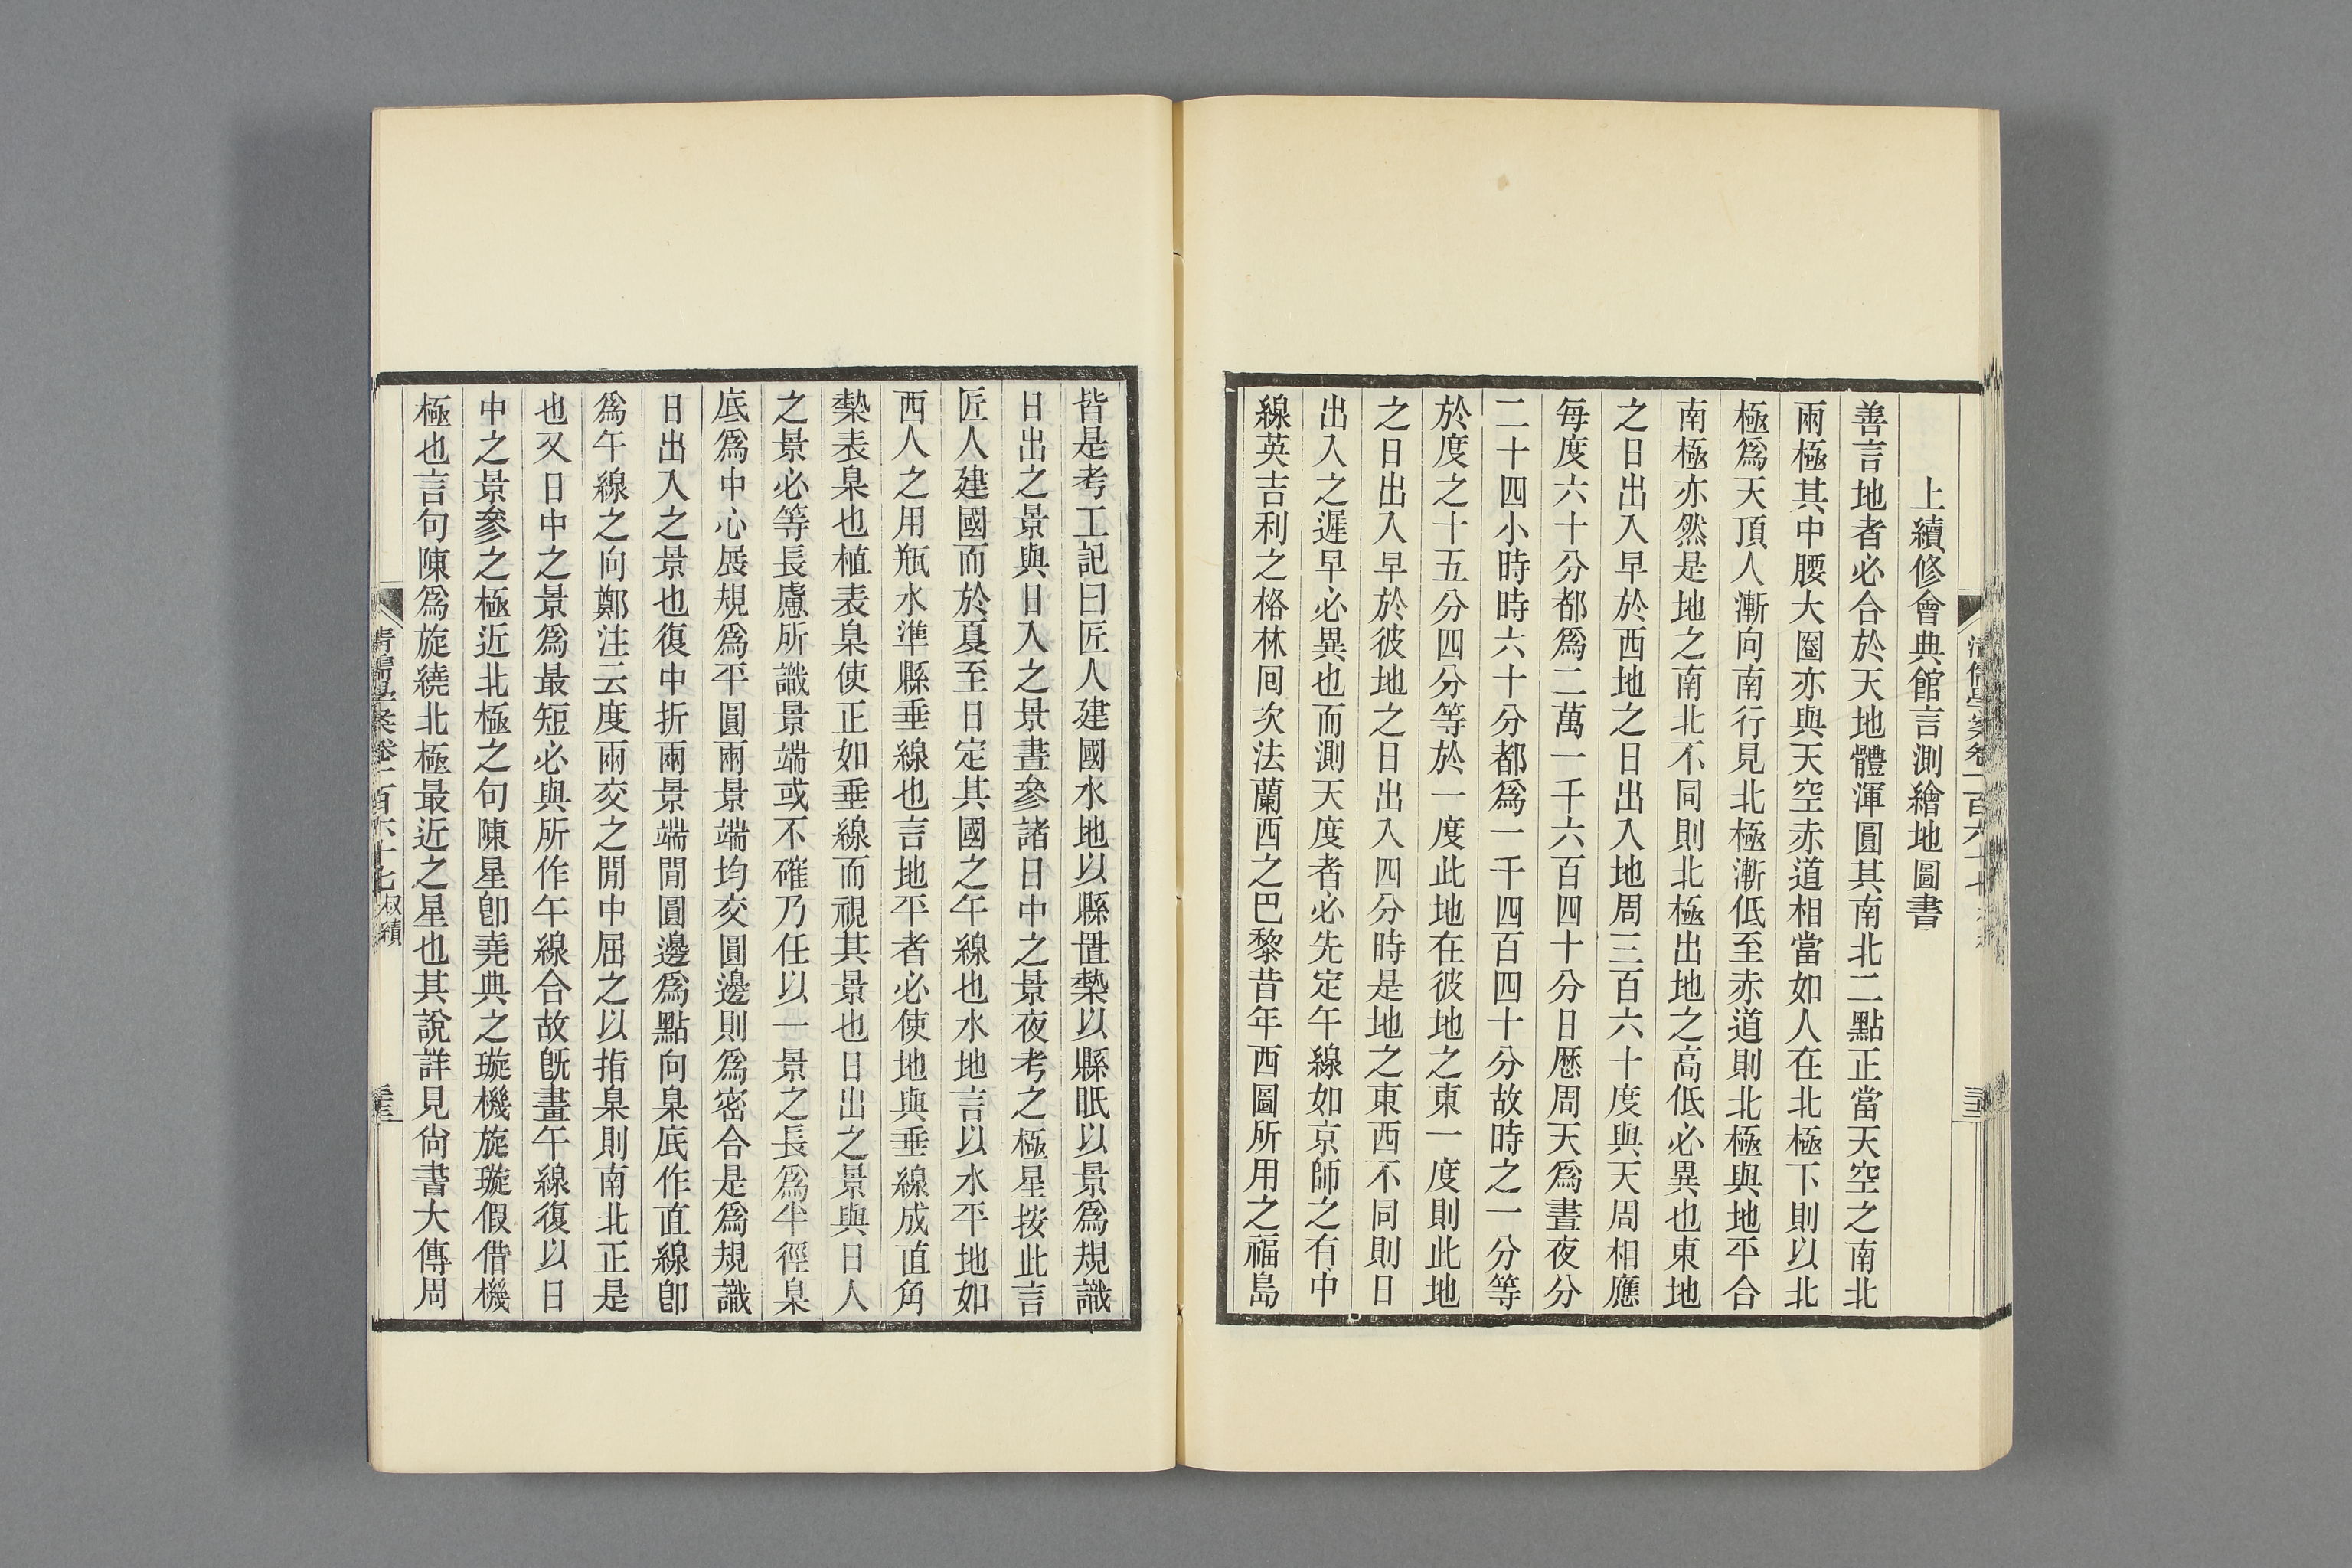 上續修會典館言測繪地圖書
善言地者必合於天地體渾圓其南北二點正當天空之南北
兩極其中腰大圈亦與天空赤道相當如人在北極下則以北
極爲天頂人漸向南行見北極漸低至赤道則北極與地平合
南極亦然是地之南北不同則北極出地之高低必異也東地
之日出入早於西地之日出入地周三百六十度與天周相應
每度六十分都爲二萬一千六百四十分日厯周天爲晝夜分
二十四小時時六十分都爲一千四百四十分故時之一分等
於度之十五分四分等於一度此地在彼地之東一度則此地
之日出入早於彼地之日出入四分時是地之東西不同則日
出入之遲早必異也而測天度者必先定午線如京師之有中
線英吉利之格林回次法蘭西之巴黎昔年西圖所用之福島
皆是考工記曰匠人建國水地以縣置槷以縣眂以景爲規識
日出之景與日入之景晝參諸日中之景夜考之極星按此言
匠人建國而於夏至日定其國之午線也水地言以水平地如
西人之用瓶水準縣垂線也言地平者必使地與垂線成直角
槷表臬也植表臬使正如垂線而視其景也日出之景與日入
之景必等長慮所識景端或不確乃任以一景之長爲半徑臬
底爲中心展規爲平圓兩景端均交圓邊則爲密合是爲規識
日出入之景也復中折兩景端閒圓邊爲點向臬底作直線卽
爲午線之向鄭注云度兩交之閒中屈之以指臬則南北正是
也又日中之景爲最短必與所作午線合故旣畫午線復以日
中之景參之極近北極之句陳星卽堯典之璇機旋璇假借機
極也言句陳爲旋繞北極最近之星也其說詳見尙書大傳周
清儒學案卷一百六十七 叔績